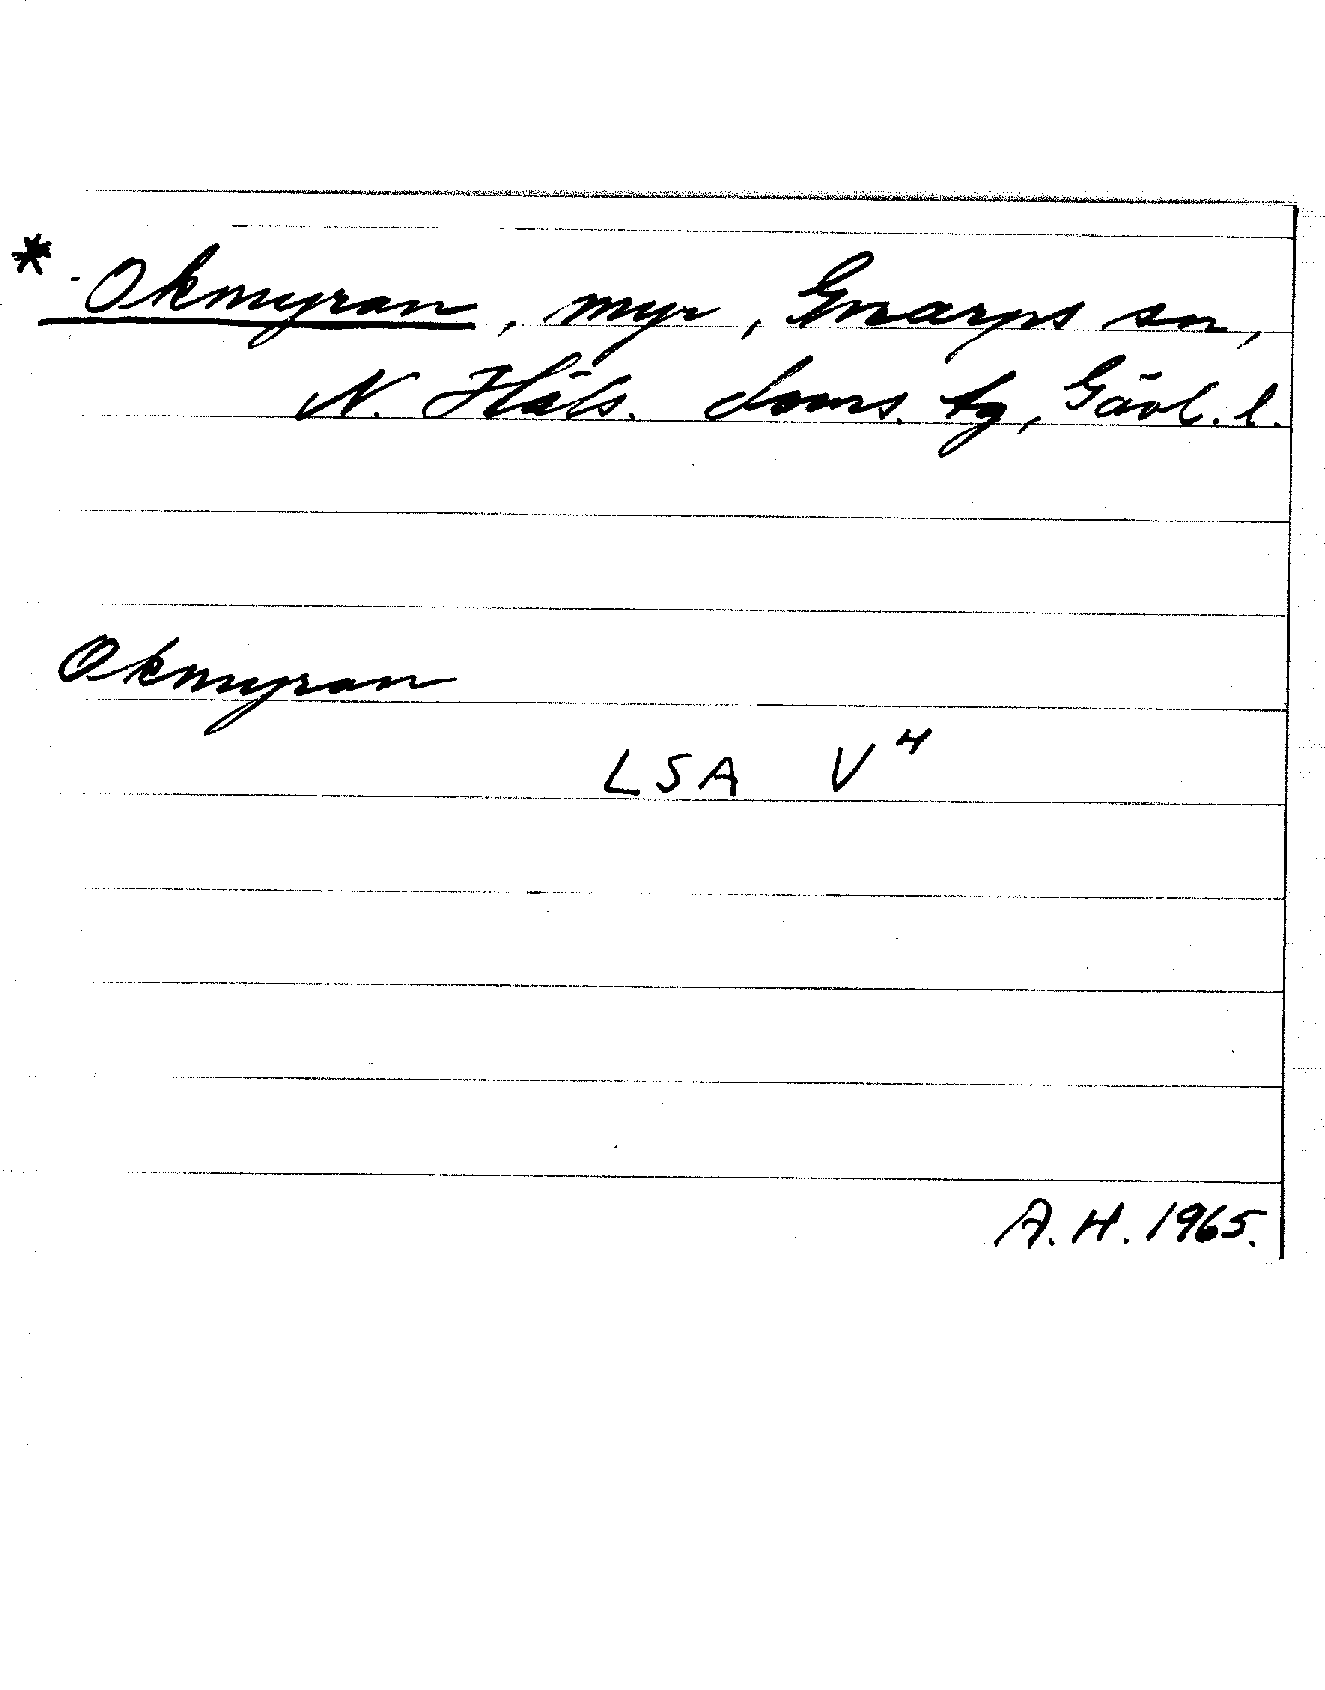 * Okmyran, myr, Gnarps sn,
N. Häls. doms. tg, Gävl. l.
Okmyran
LSA V⁴
A.H. 1965.